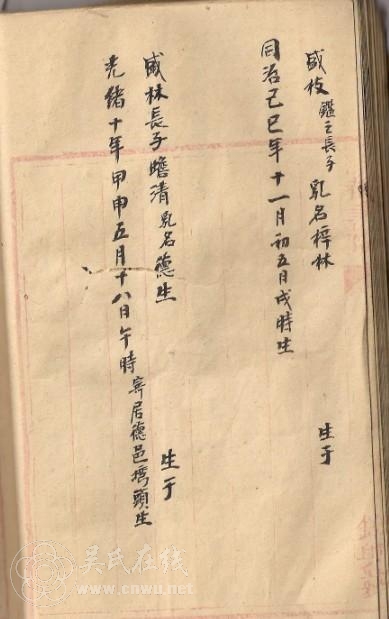 盛枝 鑑之長子 乳名梓林 生于
同治己巳年十一月初五日戌時生
盛林長子瞻清乳名德生 生于
光緒十年甲申五月十八日午時寄居德邑塆頭生
吴氏在线
www.cnwu.net